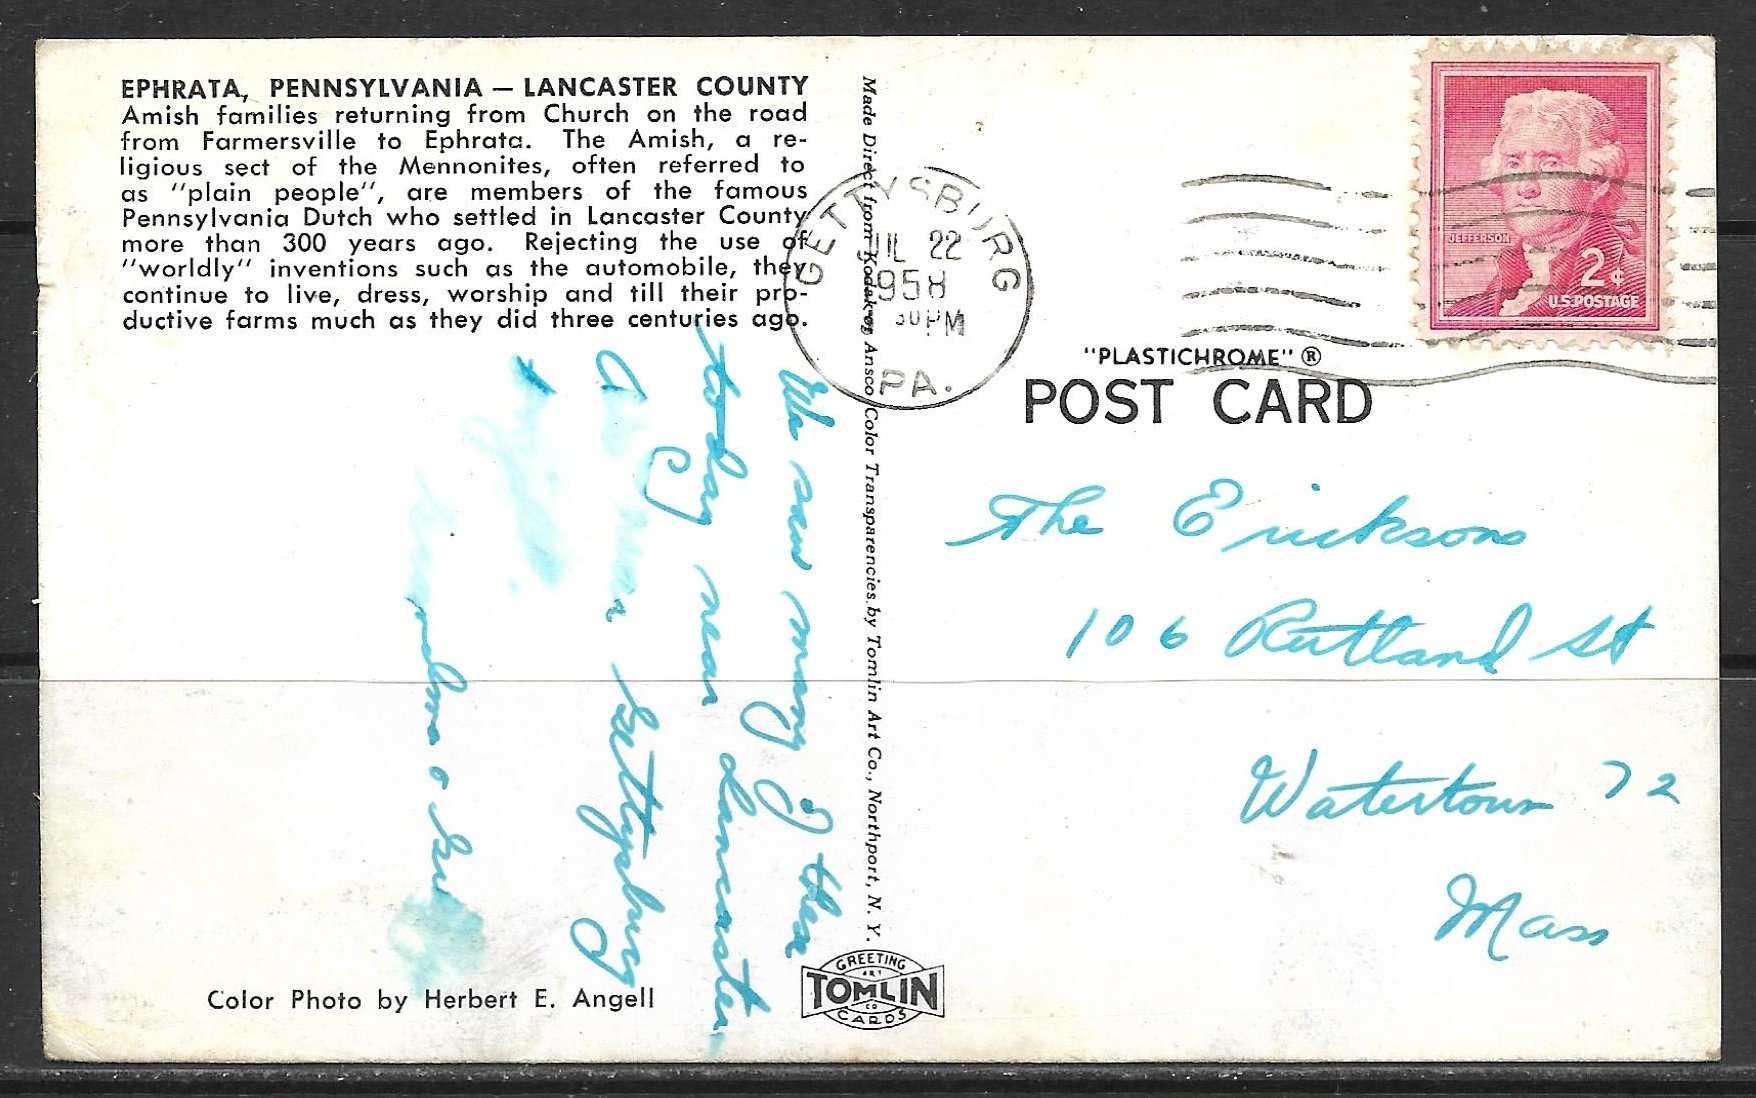 EPHRATA, PENNSYLVANIA — LANCASTER COUNTY
Amish families returning from Church on the road
from Farmersville to Ephrata. The Amish, a re-
ligious sect of the Mennonites, often referred to
as "plain people", are members of the famous
Pennsylvania Dutch who settled in Lancaster County
more than 300 years ago. Rejecting the use of
"worldly" inventions such as the automobile, they
continue to live, dress, worship and till their pro-
ductive farms much as they did three centuries ago.
We saw many of these
today near Lancaster
Gettysburg
Color Photo by Herbert E. Angell
Made Direct from Kodak or Ansco Color Transparencies by Tomlin Art Co., Northport, N. Y.
GREETING
ART
TOMLIN
CO
CARDS
GETTYSBURG
JUL 22
1958
30 PM
PA.
JEFFERSON
2¢
U.S. POSTAGE
"PLASTICHROME" ®
POST CARD
The Ericksons
106 Rutland St
Watertown 72
Mass